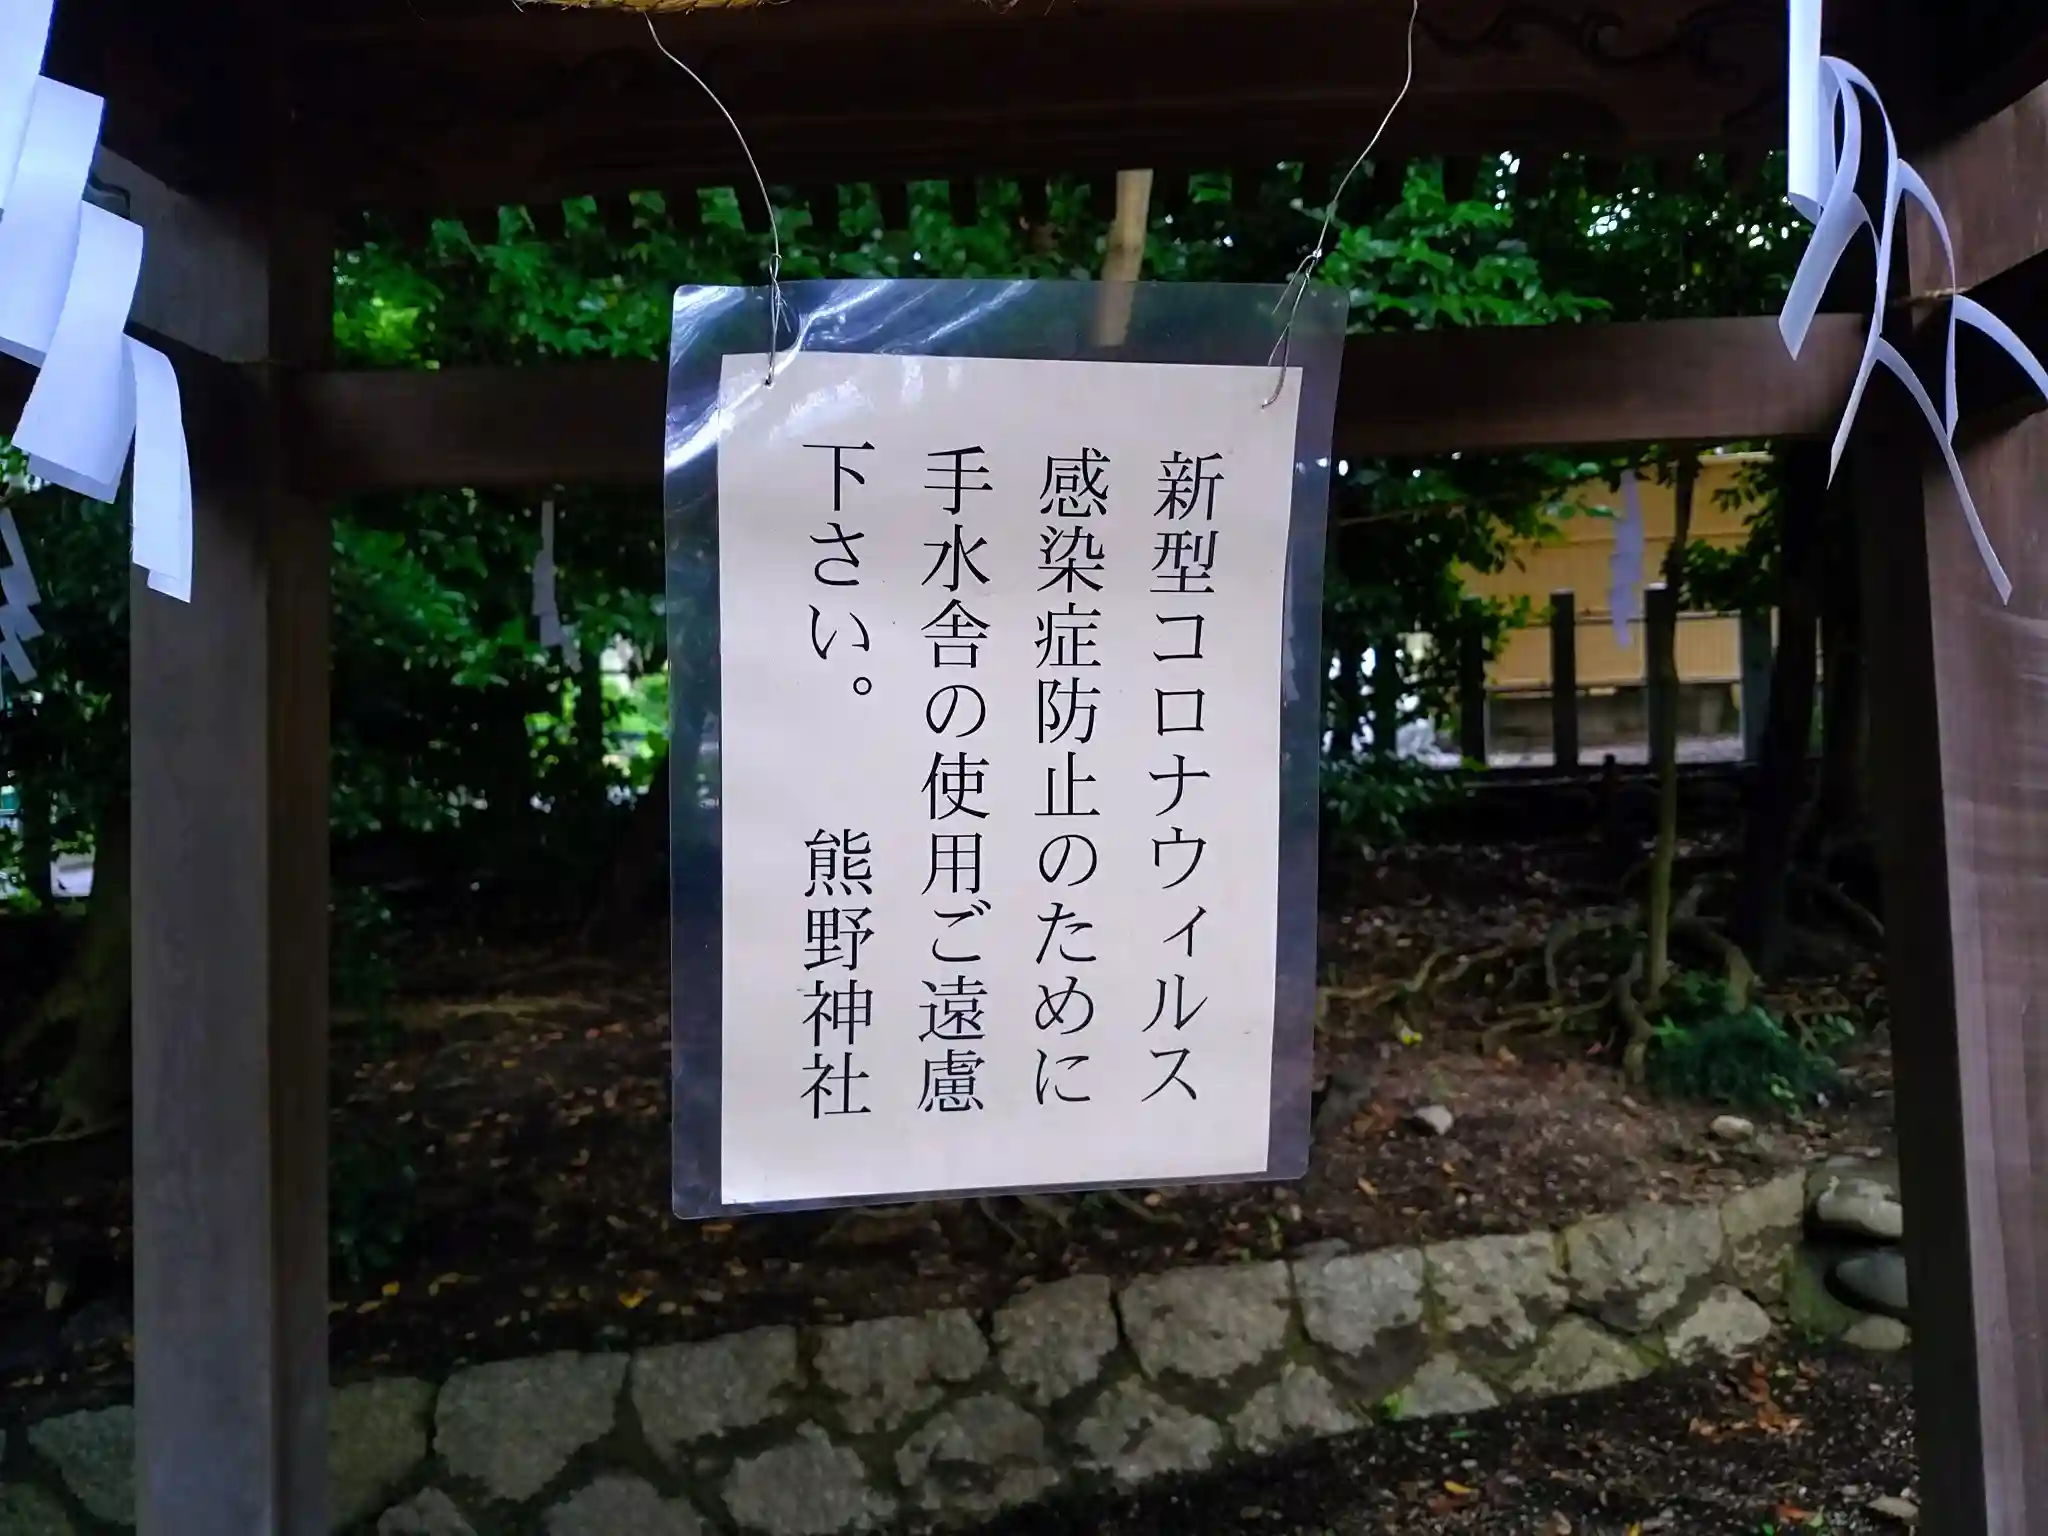 新型コロナウィルス
感染症防止のために
手水舎の使用ご遠慮
下さい。　熊野神社